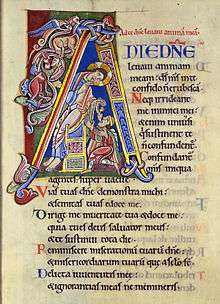 Ad te dñe levavi animā meā.
DTEDNE
levavi animam
meam: ds̄ ms̄ in te
confido n̄ erubescā
Neq; irrideant
me inimici mei:
etenim universi
qui sustinent te n̄
confundentur
Confundant
oms̄ iniqua
agentes super vacue
Vias tuas dñe demonstra michi:
& semitas tuas edoce me.
Dirige me in veritate tua & doce me:
quia tu es deus salvator meus
& te sustinui tota die.
Reminiscere miserationū tuarū dñe:
& misericordiarū tuarū que a sc̄lo st̄.
Delicta iuventutis mee:
& ignorantias meas ne memineris